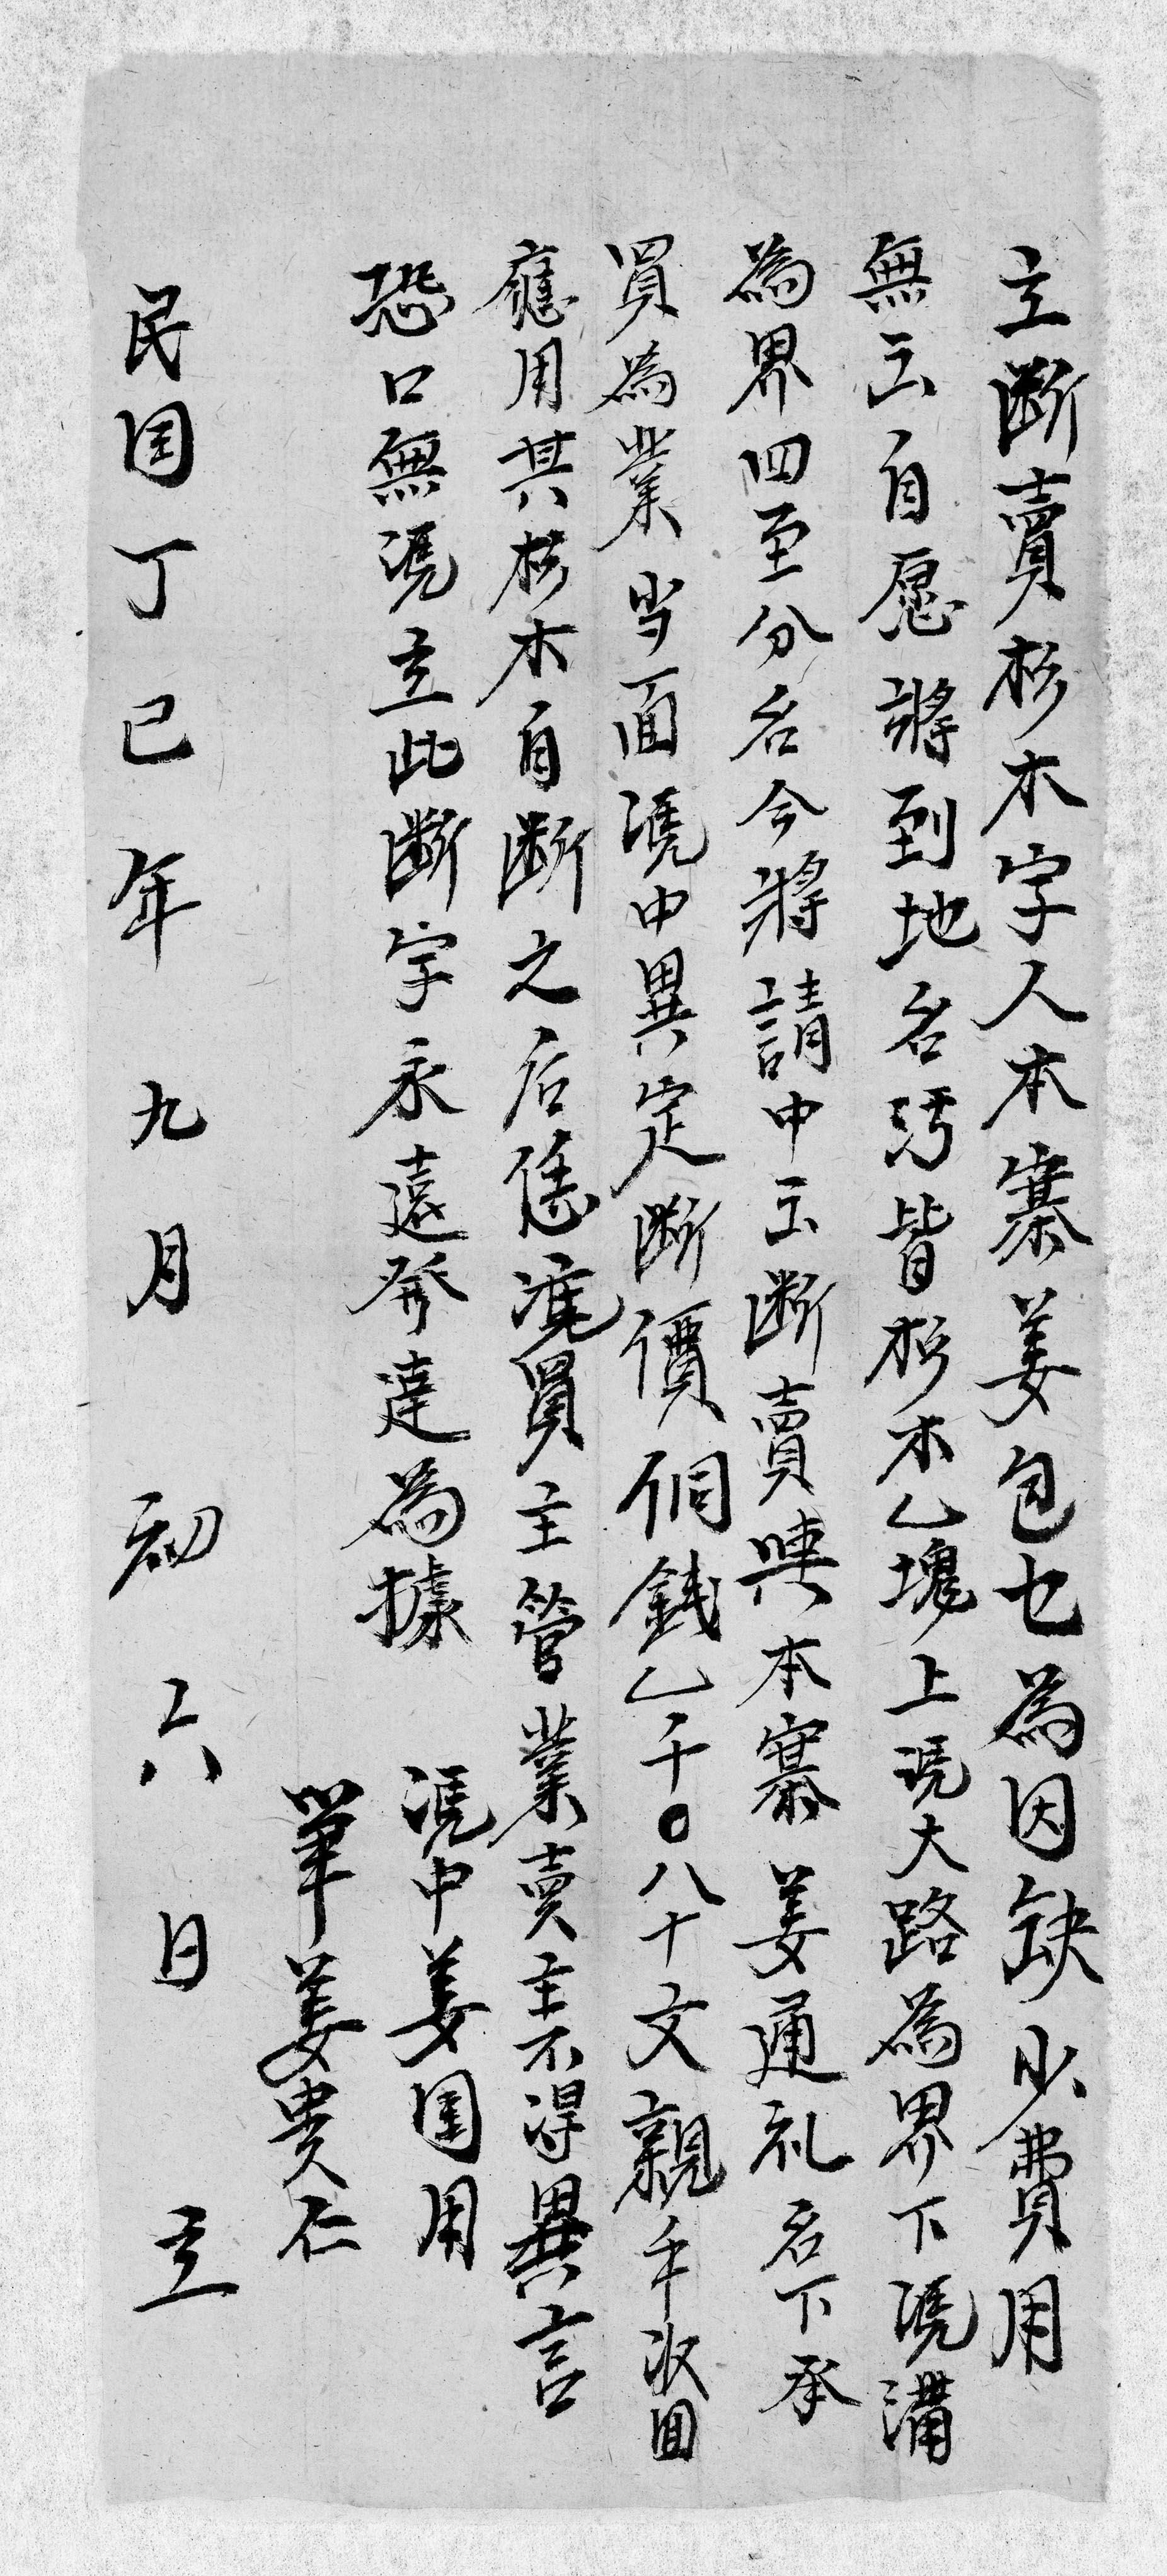 立断賣杉木字人本寨姜包乜為因缺少費用
無云自愿將到地名污皆杉木乙塊上凴大路為界下凴溝
為界四至分名今將請中云断賣與本寨姜通礼名下承
買為業当面凴中異定断價侗錢乙千〇八十文親手收囬
應用其杉木自断之后恁凴買主管業賣主不得異言
恐口無凴立此断字永遠發達為據
凴中姜国用
筆姜贵仁
民国丁巳年九月初六日立